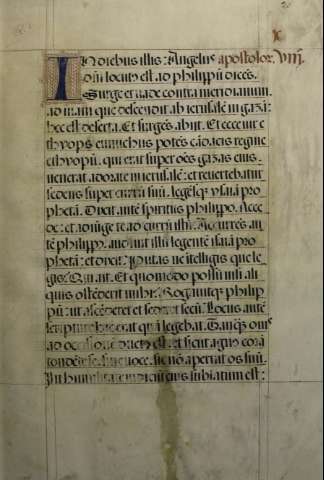 In diebus illis: Angelus apostolor. viii.
dñi locut' est ad philippū dicēs.
Surge et uade contra meridianum
ad uiam que descendit ab ierusalē in gazā:
hec est deserta. Et surgēs abiit. Et ecce uir e
thyops eunuchus potēs cādacis regine
ethyopū, qui erat super oēs gazas eius.
uenerat adorare in ierusalē: et reuertebatur
sedens super currū suū. legēsq; ysaiā pro
phetā. Dixit autē spiritus philippo. Acce
de: et adiūge te ad currū istū. Accurrēs au
tē philippo, audiuit illū legentē ysaiā pro
phetā: et dixit. Putas ne itelligis que le
gis? Qui ait. Et quomodo possū nisi ali
quis ostēderit michi? Rogauitq; philip
pū: ut ascēderet et sederet secū. Locus autē
scripture quā legebat. Tanq̄ ouis
ad occisionē ductus est: et sicut agnus corā
tondēte se sine uoce, sic nō aperuit os suū.
In humilitate iudiciū eius sublatum est: